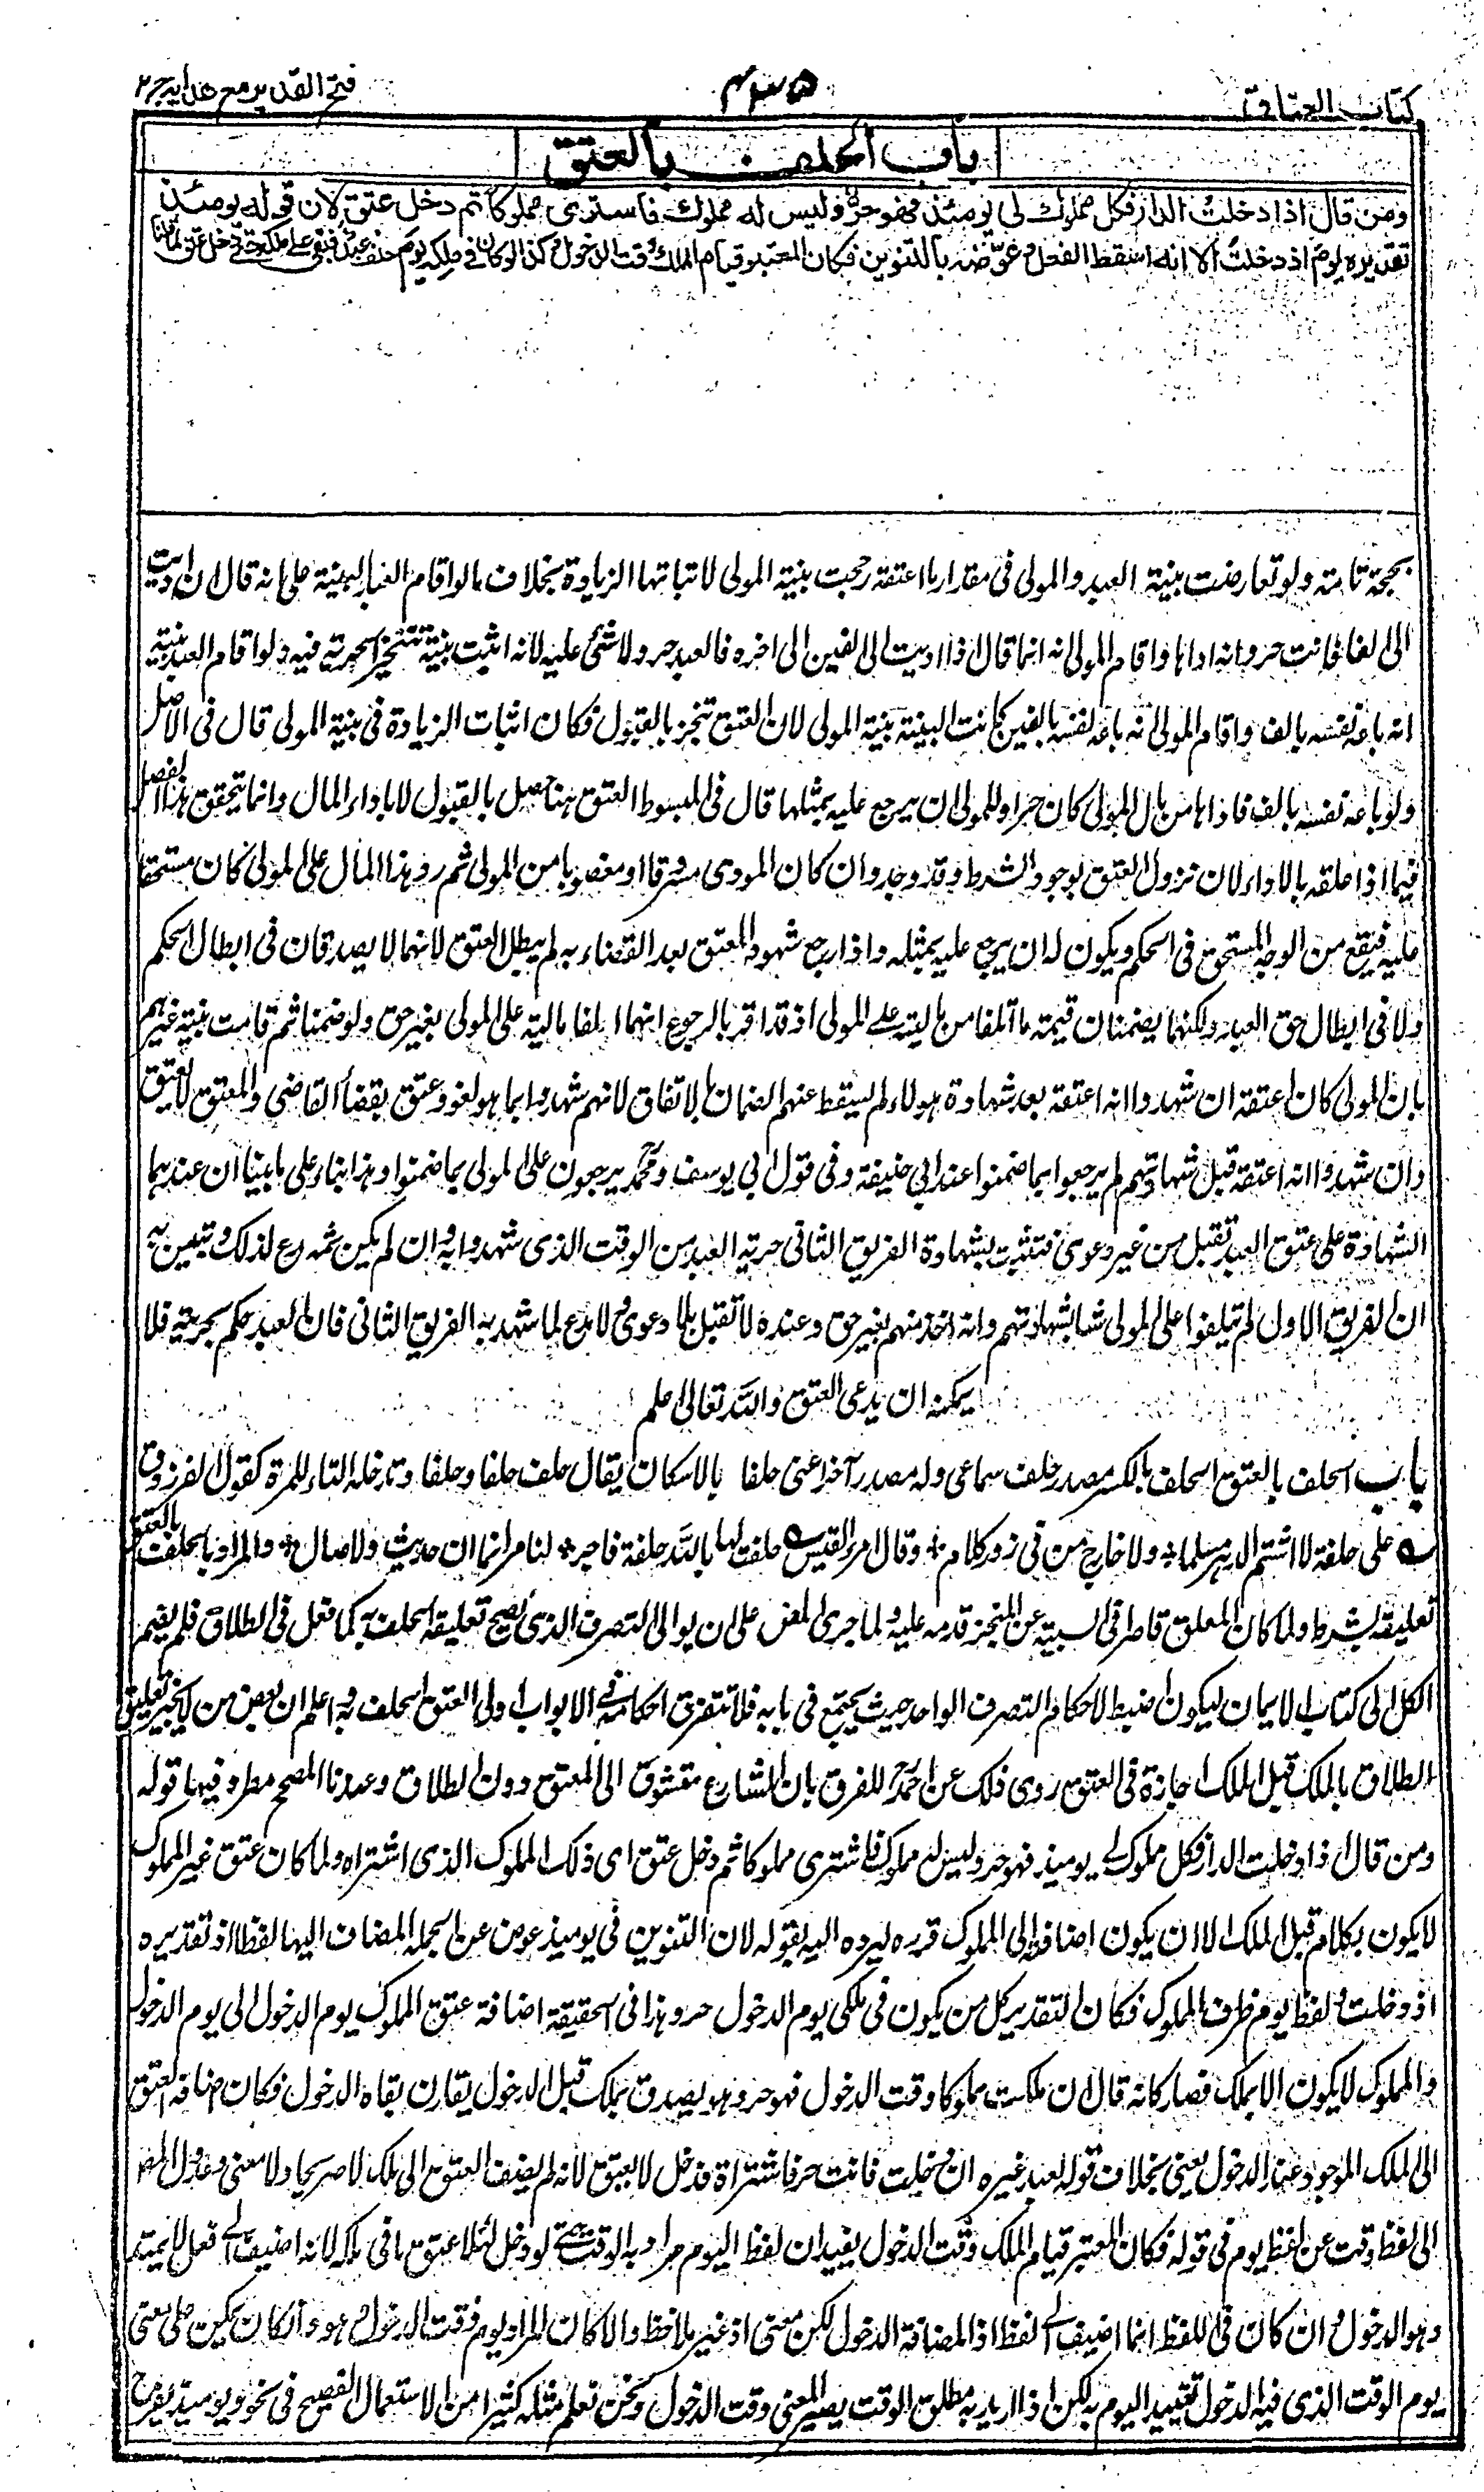 كتاب العتاق
٤٣٥
فتح القدير مع هدايه ج ٢
باب الحلف بالعتق
ومن قال اذا دخلت الدار فكل مملوك لى يومئذ فهو حر وليس له مملوك فاشترى مملوكا ثم دخل عتق لان قوله يومئذ
تقديره يوم اذ دخلت الا انه اسقط الفعل وعوضه بالتنوين فكان المعتبر قيام الملك وقت الدخول وكذا لو كان فى ملكه يوم حلف عبد فبقى على ملكه حتى دخل عتق لما قلنا
بحجة تامة ولو تعارضت بينة العبد والمولى فى مقدار ما اعتقه رجحت بينة المولى لاثباتها الزيادة بخلاف ما لو اقام العبد البينة على انه قال ان اديت
الى الفا فانت حر وانه اداها واقام المولى انه انما قال اذا اديت الى الفين الى اخره فالعبد حر ولا شئ عليه لانه اثبت بينة تنجيز الحرية فيه ولو اقام العبد بينة
انه باعه نفسه بالف واقام المولى انه باعه نفسه بالفين كانت البينة بينة المولى لان العتق تنجز بالقبول فكان اثبات الزيادة فى بينة المولى قال فى الاصل
ولو باعه نفسه بالف فاداها من مال المولى كان حرا وللمولى ان يرجع عليه بمثلها قال فى المبسوط العتق هنا حصل بالقبول لا باداء المال وانما يتحقق هذا الفصل
فيما اذا علقه بالاداء لان نزول العتق بوجود الشرط وقد وجد وان كان المودى مسروقا او مغصوبا من المولى ثم رد هذا المال على المولى كان مستحقا
عليه فيقع من الوجه المستحق فى الحكم ويكون له ان يرجع عليه بمثله واذا رجع شهود العتق بعد القضاء به لم يبطل العتق لانهما لا يصدقان فى ابطال الحكم
ولا فى ابطال حق العبد ولكنهما يضمنان قيمته ما اتلفا من ماليته على المولى اذ قد اقر بالرجوع انهما اتلفا ماليته على المولى بغير حق ولو ضمنا ثم قامت بينة غيرهم
بان المولى كان اعتقه ان شهدوا انه اعتقه بعد شهادة هولاء لم يسقط عنهم الضمان بالاتفاق لانهم شهدوا بما هو لغو وعتق بقضاء القاضى والمعتق لا يعتق
وان شهدوا انه اعتقه قبل شهادتهم لم يرجعوا بما ضمنوا عند ابي حنيفة وفى قول ابي يوسف ومحمد يرجعون على المولى بما ضمنوا وهذا بناء على ما بينا ان عندهما
الشهادة على عتق العبد تقبل من غير دعوى فتثبت بشهادة الفريق الثانى حرية العبد من الوقت الذى شهدوا به وان لم يكن ثمه مدع لذلك وتبين به
ان الفريق الاول لم يتلفوا على المولى شيا بشهادتهم وانه اخذ منهم بغير حق وعنده لا تقبل بلا دعوى ولا مدع لما شهد به الفريق الثانى فان العبد حكم بحريته فلا
يمكنه ان يدعى العتق والله تعالى اعلم
باب الحلف بالعتق الحلف بالكسر مصدر حلف سماعى وله مصدر آخر اعنى حلفا بالاسكان يقال حلف حلفا وحلفا وتدخله التاء للمرة كقول الفرزدق
على حلفة لا اشتم الدهر مسلما ٭ ولا خارج من فى زور كلام ٭ وقال امرء القيس حلفت لها بالله حلفة فاجر ٭ لناموا فما ان حديث ولا صال ٭ والمراد بالحلف بالعتق
تعليقه بشرط ولما كان المعلق قاصرا فى السببية عن المنجز قدمه عليه ولما جرى المض على ان يوالى التصرف الذى يصح تعليقه الحلف به كما فعل فى الطلاق فلم يضم
الكل الى كتاب الايمان ليكون اضبط لاحكام التصرف الواحد حيث يجتمع فى بابه فلا تتفرق احكامه فى الابواب اولى العتق الحلف به اعلم ان بعض من لا يجيز تعليق
الطلاق بالملك قبل الملك اجازه فى العتق روى ذلك عن احمد للفرق بان للشارع تشوق الى العتق دون الطلاق وعندنا المصحح مطرد فيهما قوله
ومن قال اذا دخلت الدار فكل مملوك لى يوميذ فهو حر وليس له مملوك فاشترى مملوكا ثم دخل عتق اى ذلك المملوك الذى اشتراه ولما كان عتق غير المملوك
لا يكون بكلام قبل الملك الا ان يكون اضافة الى المملوك قرره ليرده اليه بقوله لان التنوين فى يوميذ عوض عن الجملة المضاف اليها لفظا اذ تقديره
اذ دخلت ولفظ يوم ظرف المملوك فكان التقدير كل من يكون فى ملكى يوم الدخول حر وهذا فى الحقيقة اضافة عتق المملوك يوم الدخول الى يوم الدخول
والمملوك لا يكون الا بملك فصار كانه قال ان ملكت مملوكا وقت الدخول فهو حر وهو يصدق بملك قبل الدخول يقارن بقاه الدخول فكان اضافة العتق
الى الملك الموجود عند الدخول يعنى بخلاف قوله لعبد غيره ان دخلت فانت حر فاشتراه فدخل لا يعتق لانه لم يضف العتق الى ملك لا صريحا ولا معنى وعدول المصر
الى لفظ وقت عن لفظ يوم فى قوله فكان المعتبر قيام الملك وقت الدخول يفيد ان لفظ اليوم مراد به الوقت حتى لو دخل ليلا عتق ما فى ملكه لانه اضيف الى فعل لا يمتد
وهو الدخول وان كان فى اللفظ انما اضيف الى لفظ اذ المضافة الدخول لكن معنى اذ غير ملاحظ والا كان المراد يوم وقت الدخول وهو وان كان يمكن على معنى
يوم الوقت الذى فيه الدخول تقييد اليوم به لكن اذا اريد به مطلق الوقت يصير المعنى وقت الدخول ونحن نعلم مثله كثيرا من الاستعمال الفصيح فى نحو ويوميذ يفرح